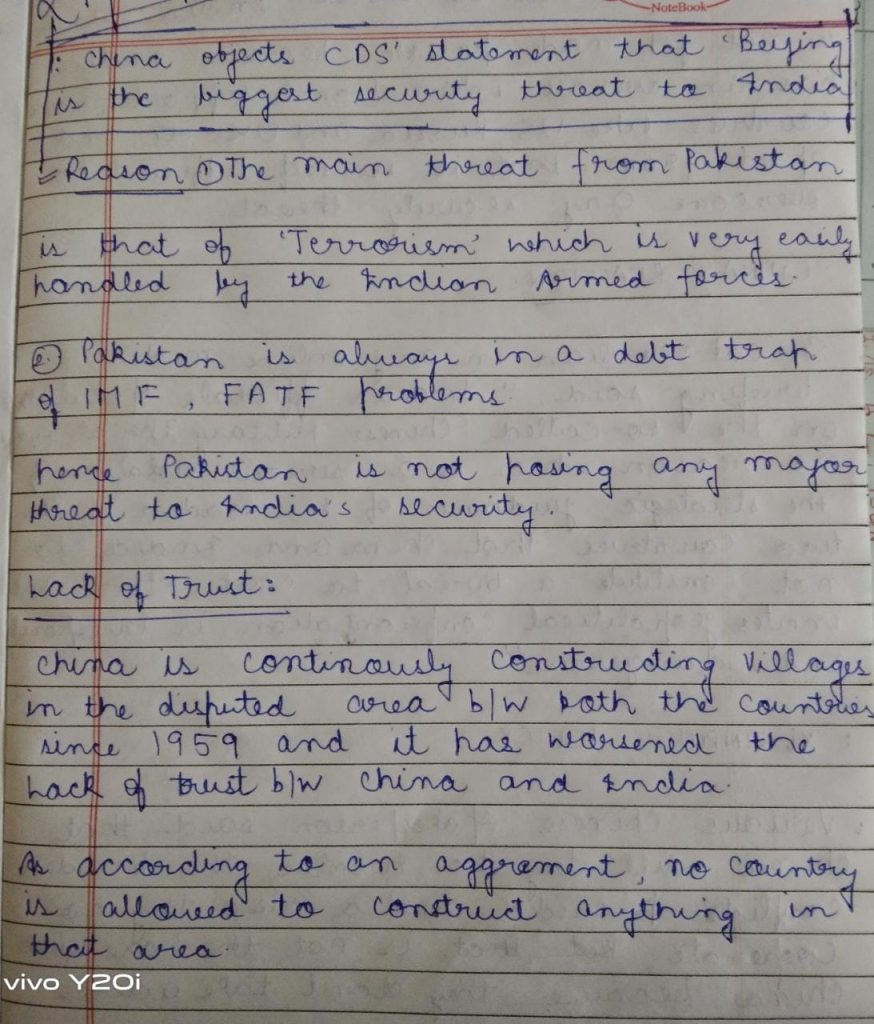 NoteBook
: China objects CDS' statement that 'Beijing
is the biggest security threat to India
= Reason ① The main threat from Pakistan
is that of 'Terrorism' which is very easily
handled by the Indian Armed forces.
②. Pakistan is always in a debt trap
of IMF, FATF problems
hence Pakistan is not posing any major
threat to India's security.
Lack of Trust:
China is continously constructing villages
in the disputed area b/w both the countries
since 1959 and it has worsened the
Lack of trust b/w China and India.
As according to an aggrement, no country
is allowed to construct anything in
that area.
vivo Y20i